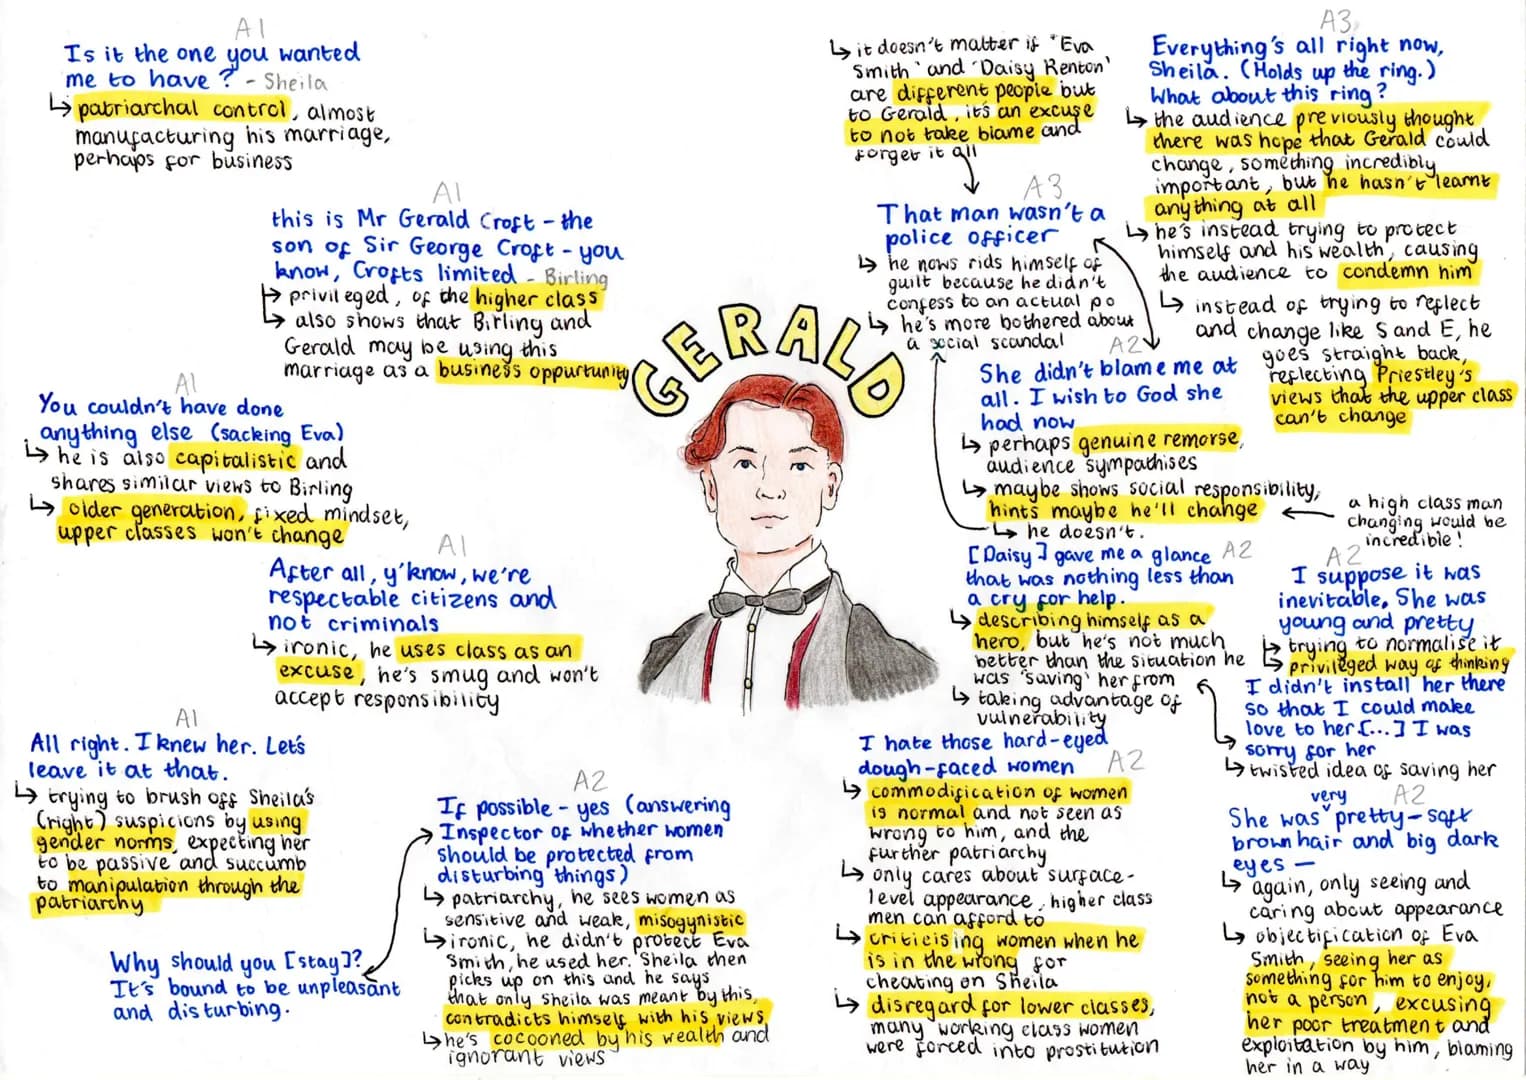 A1
Is it the one you wanted
me to have? - Sheila
↳ patriarchal control, almost
manufacturing his marriage,
perhaps for business
A1
this is Mr Gerald Croft - the
son of Sir George Croft - you
know, Crofts limited - Birling
↳ privileged, of the higher class
↳ also shows that Birling and
Gerald may be using this
marriage as a business oppurtunity
A1
You couldn't have done
anything else (sacking Eva)
↳ he is also capitalistic and
shares similar views to Birling
↳ older generation, fixed mindset,
upper classes won't change
A1
After all, y'know, we're
respectable citizens and
not criminals
↳ ironic, he uses class as an
excuse, he's smug and won't
accept responsibility
A1
All right. I knew her. Let's
leave it at that.
↳ trying to brush off Sheila's
(right) suspicions by using
gender norms, expecting her
to be passive and succumb
to manipulation through the
patriarchy
Why should you [stay]?
It's bound to be unpleasant
and disturbing.
A2
If possible - yes (answering
Inspector of whether women
should be protected from
disturbing things)
↳ patriarchy, he sees women as
sensitive and weak, misogynistic
↳ ironic, he didn't protect Eva
Smith, he used her. Sheila then
picks up on this and he says
that only Sheila was meant by this,
contradicts himself with his views
↳ he's cocooned by his wealth and
ignorant views
GERALD
↳ it doesn't matter if 'Eva
Smith' and 'Daisy Renton'
are different people but
to Gerald, it's an excuse
to not take blame and
forget it all
A3
That man wasn't a
police officer
↳ he nows rids himself of
guilt because he didn't
confess to an actual po
↳ he's more bothered about
a social scandal
A2
She didn't blame me at
all. I wish to God she
had now
↳ perhaps genuine remorse,
audience sympathises
↳ maybe shows social responsibility,
hints maybe he'll change
↳ he doesn't.
a high class man
changing would be
incredible!
[Daisy] gave me a glance A2
that was nothing less than
a cry for help.
↳ describing himself as a
hero, but he's not much
better than the situation he
was 'saving' her from
↳ taking advantage of
vulnerability
I hate those hard-eyed
dough-faced women A2
↳ commodification of women
is normal and not seen as
wrong to him, and the
further patriarchy
↳ only cares about surface-
level appearance, higher class
men can afford to
↳ criticising women when he
is in the wrong for
cheating on Sheila
↳ disregard for lower classes,
many working class women
were forced into prostitution
A3
Everything's all right now,
Sheila. (Holds up the ring.)
What about this ring?
↳ the audience previously thought
there was hope that Gerald could
change, something incredibly
important, but he hasn't learnt
anything at all
↳ he's instead trying to protect
himself and his wealth, causing
the audience to condemn him
↳ instead of trying to reflect
and change like S and E, he
goes straight back,
reflecting Priestley's
views that the upper class
can't change
A2
I suppose it was
inevitable. She was
young and pretty
↳ trying to normalise it
↳ privileged way of thinking
I didn't install her there
so that I could make
love to her [...] I was
sorry for her
↳ twisted idea of saving her
A2
very
She was pretty - soft
brown hair and big dark
eyes —
↳ again, only seeing and
caring about appearance
↳ objectification of Eva
Smith, seeing her as
something for him to enjoy,
not a person, excusing
her poor treatment and
exploitation by him, blaming
her in a way